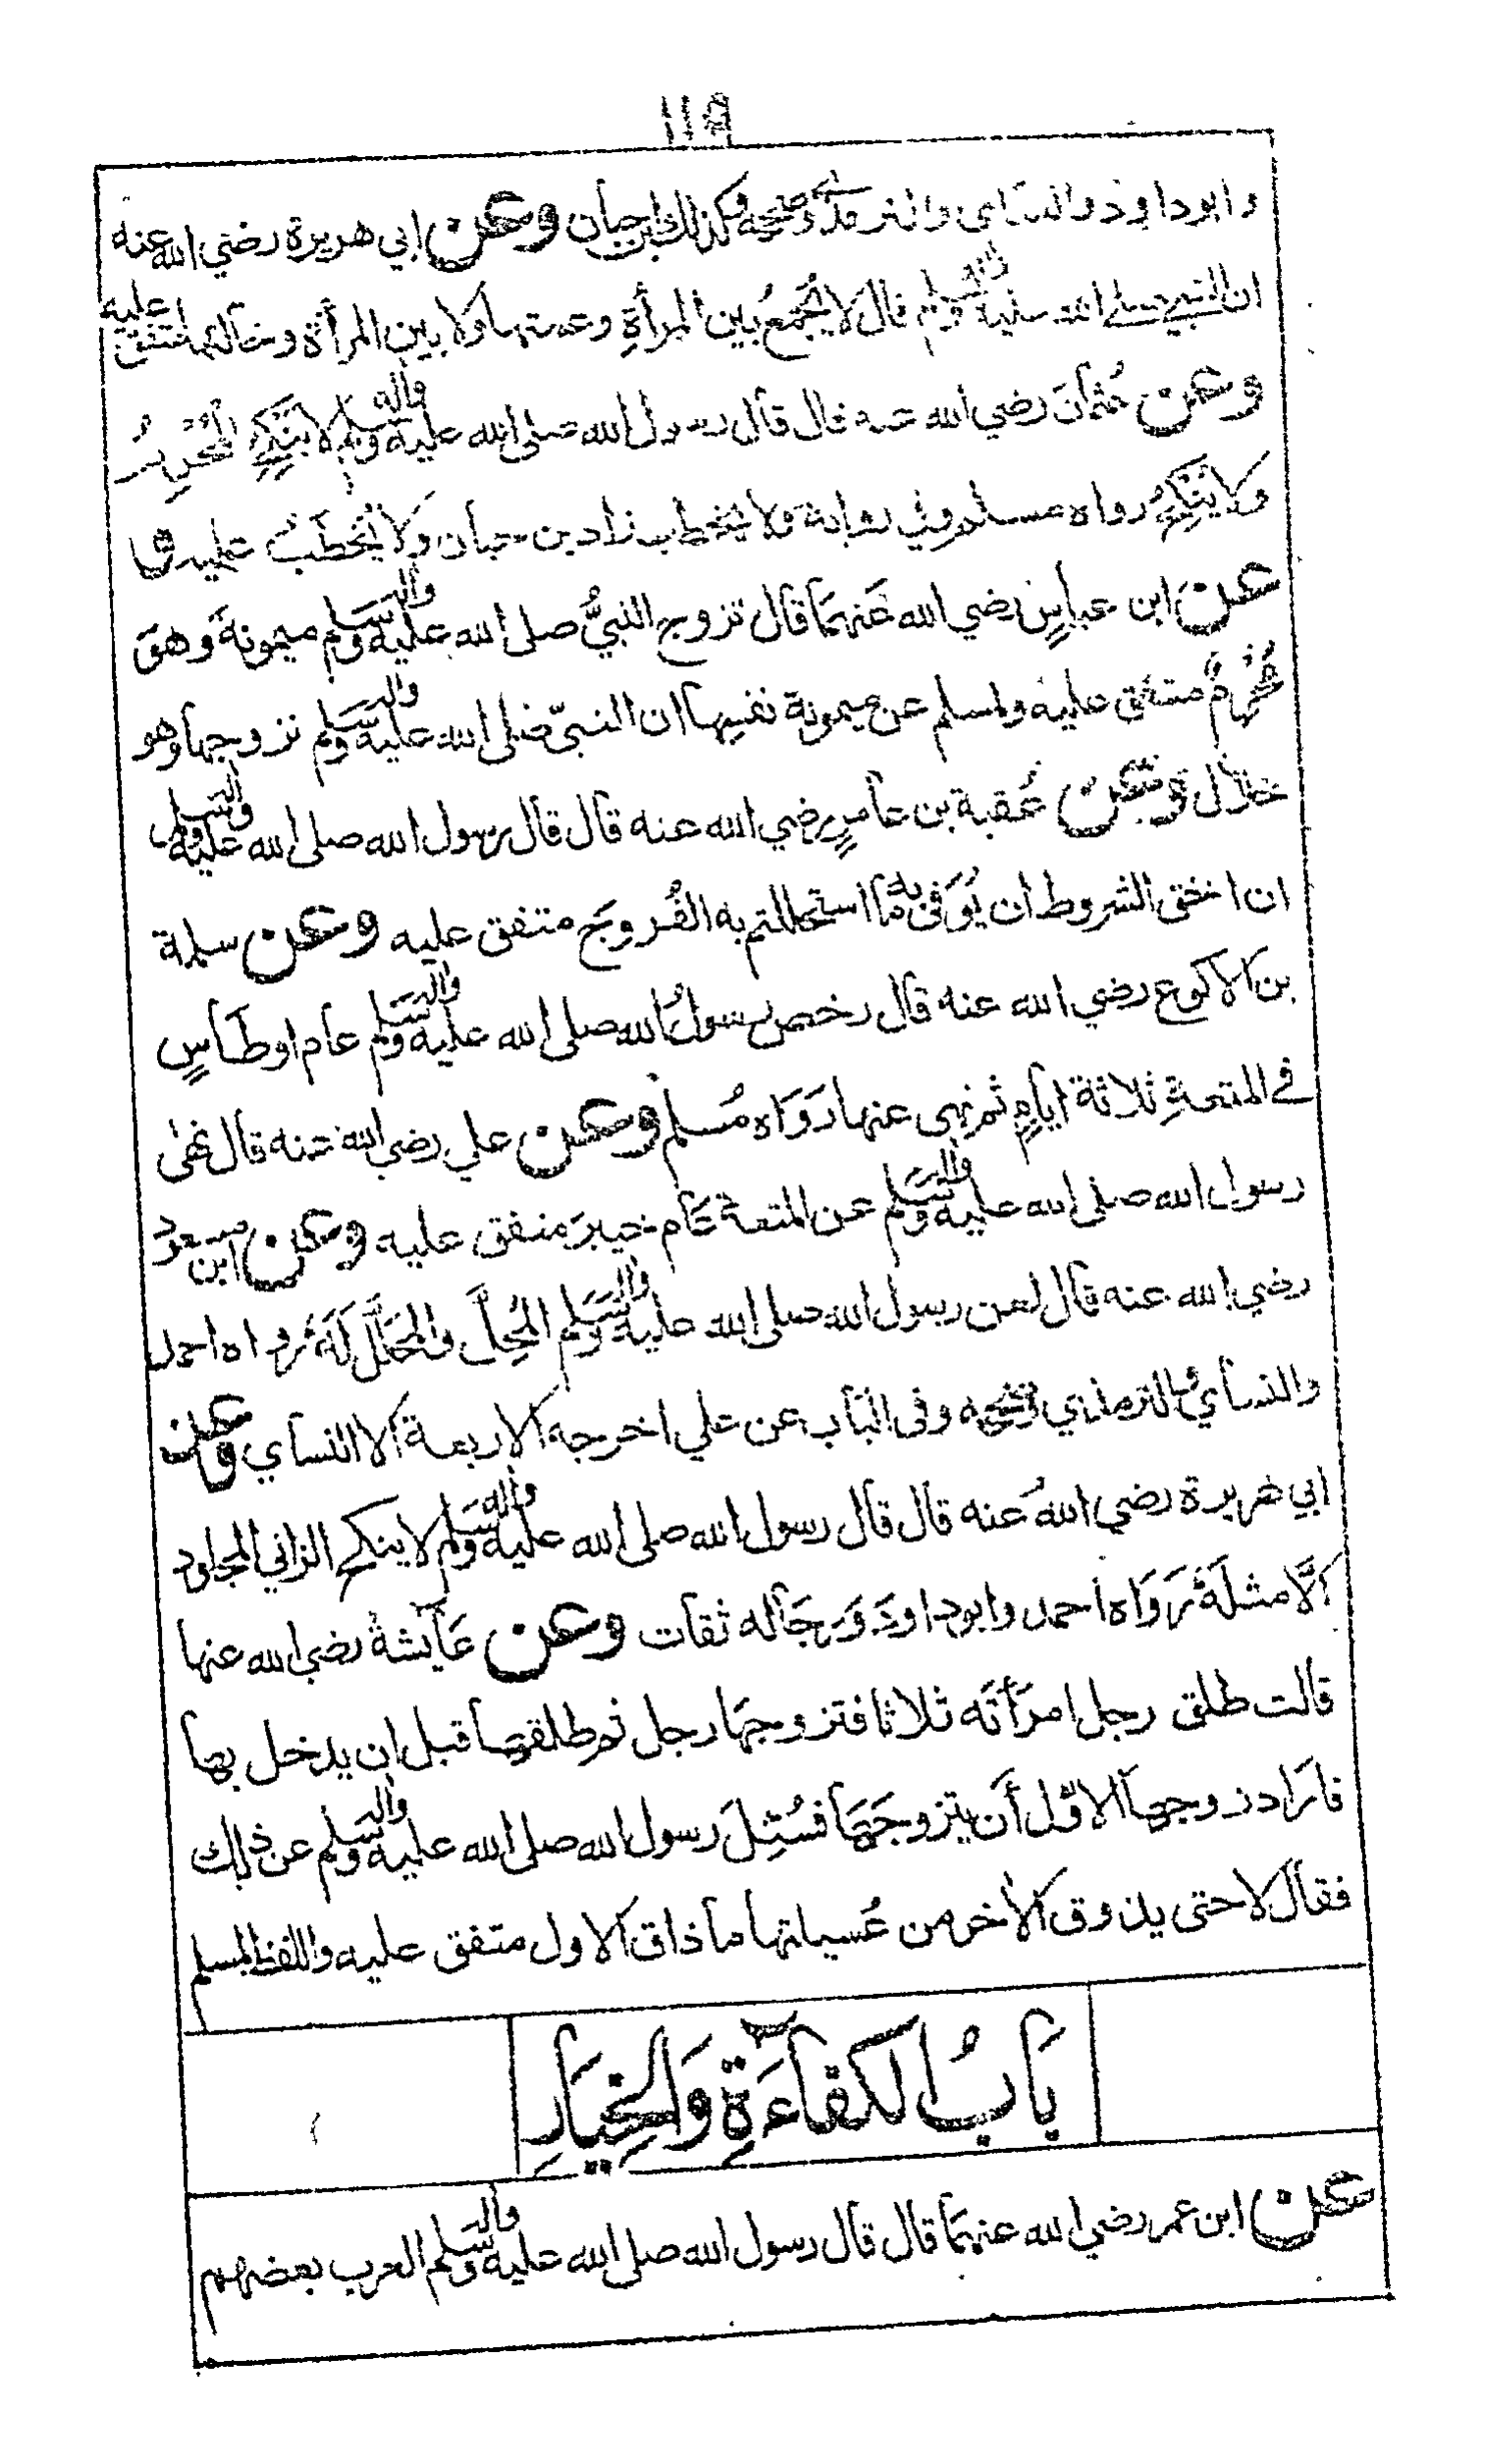 ١١٩
وابوداود والنساى والترمذي وصححه وكذلك ابن حبان وعن ابي هريرة رضي الله عنه
ان النبي صلى الله عليه واله وسلم قال لا يُجْمَعُ بين المرأةِ وعمتها ولا بين المرأة وخالتها متفق عليه
وعن عثمان رضي الله عنه قال قال رسول الله صلى الله عليه واله وسلم لا يَنْكِحُ المُحْرِمُ
ولا يُنْكِحُ رواه مسلم وفي رواية ولا يخطب زاد بن حبان ولا يُخْطَبُ عليه و
عن ابن عباسٍ رضي الله عَنهمَا قال تزوج النبيُّ صلى الله عليه واله وسلم ميمونةَ وهو
مُحْرِمٌ متفق عليه ولمسلم عن ميمونة نفسِها ان النبيّ صلى الله عليه واله وسلم تزوجها وهو
حلال وعن عُقبة بن عامرٍ رضي الله عنه قال قال رسول الله صلى الله عليه واله وسلم
ان احق الشروط ان يُوَفى به ما استحللتم به الفُروجَ متفق عليه وعن سلمة
بن الاكوع رضي الله عنه قال رخص رسولُ الله صلى الله عليه واله وسلم عام اوطَاسٍ
في المتعةِ ثلاثة ايامٍ ثم نهى عنها رَوَاه مُسلم وعن علي رضي الله عنه قال نهى
رسول الله صلى الله عليه واله وسلم عن المتعة عَام خيبرَ متفق عليه وعن ابن مسعود
رضي الله عنه قال لعن رسول الله صلى الله عليه واله وسلم المُحِلَّ والمُحَلَّلَ لَهُ رواه احمد
والنسأي والترمذي وصححه وفى الباب عن علي اخرجه الاربعة الا النسأي وعن
ابي هريرة رضي اللهُ عنه قال قال رسول الله صلى الله عليه واله وسلم لا ينكح الزاني المجلود
الَّا مثلَهُ رَوَاه احمد وابوداودَ وَرجَاله ثقات وعن عَايشةُ رضي الله عنها
قالت طلق رجل امرَأتَه ثلاثا فتزوجهَا رجل ثم طلقها قبل ان يدخل بها
فارَاد زوجها الاوّل أَن يتزوجَهَا فسُئِلَ رسول الله صلى الله عليه واله وسلم عن ذلك
فقال لا حتى يذوق الاخر من عُسيلتها ما ذاق الاول متفق عليه واللفظ لمسلم
بَابُ الكفاءَةِ وَالخِيَارِ
عن ابن عمر رضي الله عنهمَا قال قال رسول الله صلى الله عليه واله وسلم العرب بعضهم